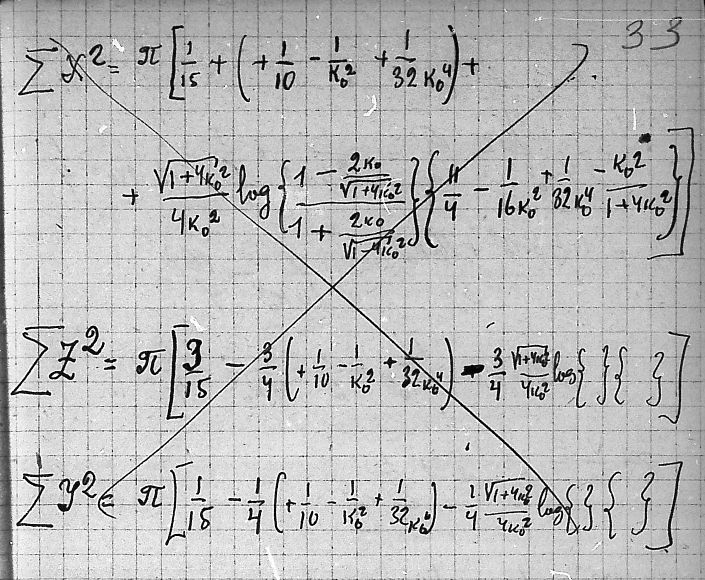 33
∑ X² = π [ 1/15 + ( + 1/10 − 1/K₀² + 1/32K₀⁴ ) +
+ √(1+4K₀²)/4K₀² log { (1 − 2K₀/√(1+4K₀²)) / (1 + 2K₀/√(1−4K₀²)) } { /4 − 1/16K₀² + 1/32K₀⁴ − K₀²/(1+4K₀²) } ]
∑ Z² = π [ 3/15 − 3/4 ( + 1/10 − 1/K₀² + 1/32K₀⁴ ) − 3/4 √(1+4K₀²)/4K₀² log { } { } ]
∑ Y² = π [ 1/15 − 1/4 ( + 1/10 − 1/K₀² + 1/32K₀⁴ ) − 1/4 √(1+4K₀²)/4K₀² log { } { } ]